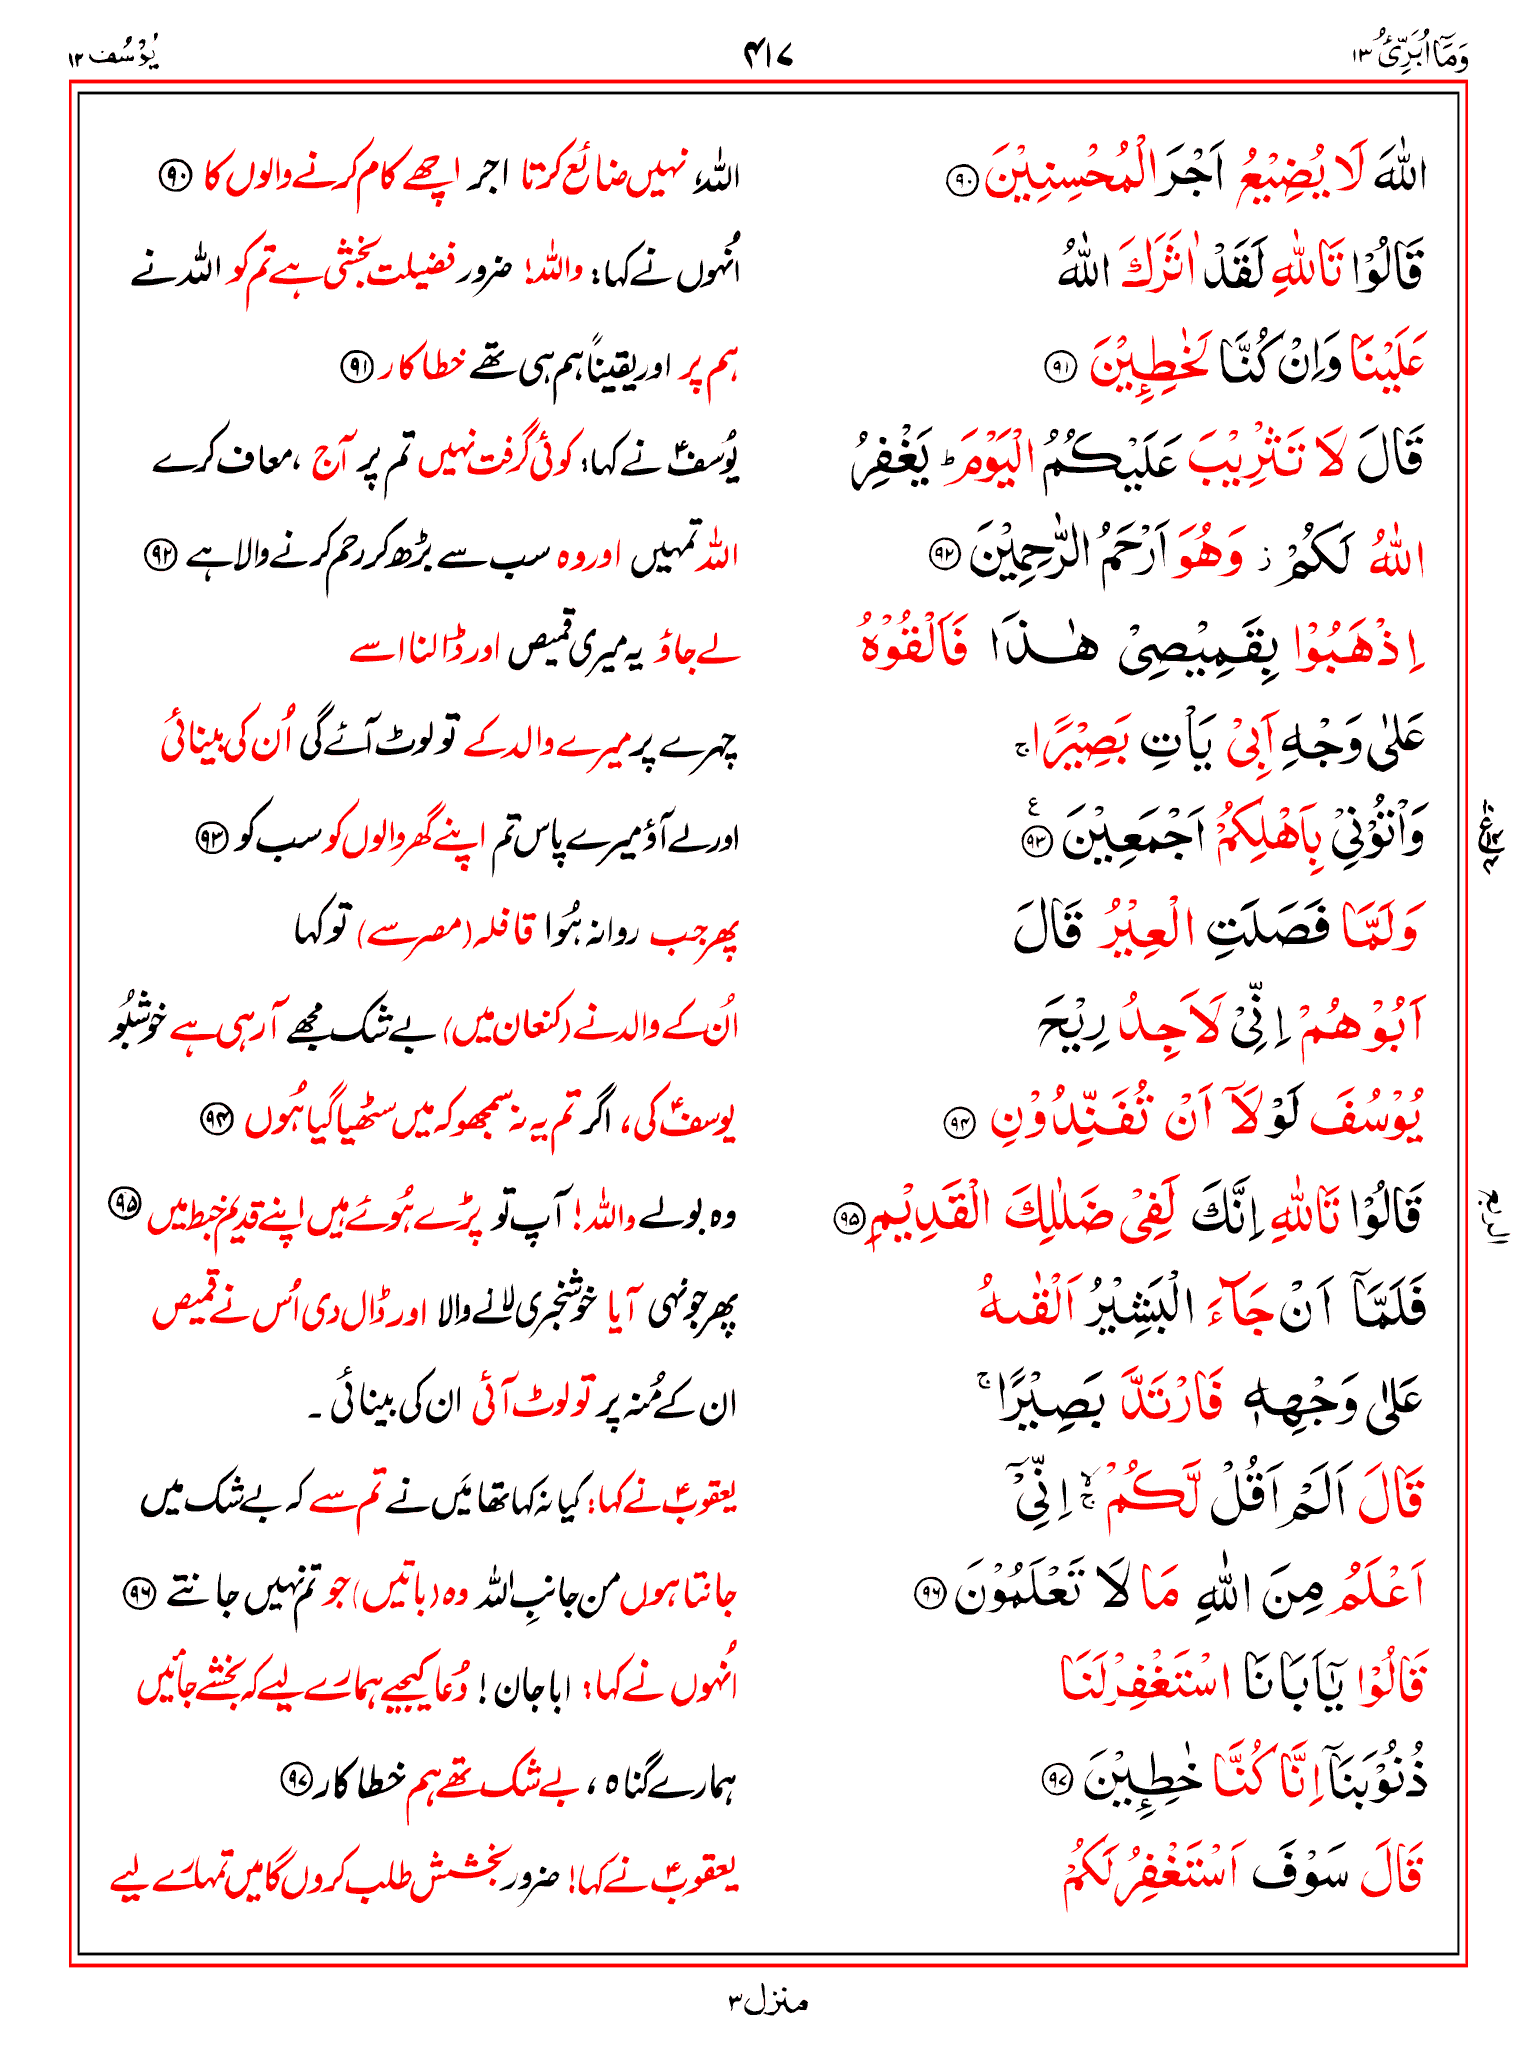 وَمَآ اُبَرِّئُ ۱۳
۴۱۷
یُوْسُف ۱۲
اللّٰهَ لَا یُضِیْعُ اَجْرَ الْمُحْسِنِیْنَ ۹۰ اللہ، نہیں ضائع کرتا اجر اچھے کام کرنے والوں کا ۹۰
قَالُوْا تَاللّٰهِ لَقَدْ اٰثَرَكَ اللّٰهُ اُنہوں نے کہا: واللہ! ضرور فضیلت بخشی ہے تم کو اللہ نے
عَلَیْنَا وَاِنْ كُنَّا لَخٰطِـِٕیْنَ ۹۱ ہم پر اور یقیناً ہم ہی تھے خطا کار ۹۱
قَالَ لَا تَثْرِیْبَ عَلَیْكُمُ الْیَوْمَ ؕ یَغْفِرُ یُوسفؑ نے کہا: کوئی گرفت نہیں تم پر آج ،معاف کرے
اللّٰهُ لَكُمْ ؗ وَهُوَ اَرْحَمُ الرّٰحِمِیْنَ ۹۲ اللہ تمہیں اور وہ سب سے بڑھ کر رحم کرنے والا ہے ۹۲
اِذْهَبُوْا بِقَمِیْصِیْ هٰذَا فَاَلْقُوْهُ لے جاؤ یہ میری قمیص اور ڈالنا اسے
عَلٰی وَجْهِ اَبِیْ یَاْتِ بَصِیْرًا ۚ چہرے پر میرے والد کے تو لوٹ آئے گی اُن کی بینائی
وَاْتُوْنِیْ بِاَهْلِكُمْ اَجْمَعِیْنَ ۹۳ ع اور لے آؤ میرے پاس تم اپنے گھر والوں کو سب کو ۹۳
وَلَمَّا فَصَلَتِ الْعِیْرُ قَالَ پھر جب روانہ ہُوا قافلہ (مصر سے) تو کہا
اَبُوْهُمْ اِنِّیْ لَاَجِدُ رِیْحَ اُن کے والد نے (کنعان میں) بے شک مجھے آ رہی ہے خوشبُو
یُوْسُفَ لَوْ لَاۤ اَنْ تُفَنِّدُوْنِ ۹۴ یوسفؑ کی، اگر تم یہ نہ سمجھو کہ میں سٹھیا گیا ہُوں ۹۴
قَالُوْا تَاللّٰهِ اِنَّكَ لَفِیْ ضَلٰلِكَ الْقَدِیْمِ ۹۵ وہ بولے واللہ! آپ تو پڑے ہُوئے ہیں اپنے قدیم خبط میں ۹۵
الربع
فَلَمَّاۤ اَنْ جَآءَ الْبَشِیْرُ اَلْقٰىهُ پھر جونہی آیا خوشخبری لانے والا اور ڈال دی اُس نے قمیص
عَلٰی وَجْهِهٖ فَارْتَدَّ بَصِیْرًا ۚ ان کے مُنہ پر تو لوٹ آئی ان کی بینائی ۔
قَالَ اَلَمْ اَقُلْ لَّكُمْ ۙۚ اِنِّیْۤ یعقوبؑ نے کہا: کیا نہ کہا تھا مَیں نے تم سے کہ بے شک میں
اَعْلَمُ مِنَ اللّٰهِ مَا لَا تَعْلَمُوْنَ ۹۶ جانتا ہوں من جانبِ اللہ وہ (باتیں) جو تم نہیں جانتے ۹۶
قَالُوْا یٰۤاَبَانَا اسْتَغْفِرْ لَنَا اُنہوں نے کہا: ابا جان ! دُعا کیجیے ہمارے لیے کہ بخشے جائیں
ذُنُوْبَنَاۤ اِنَّا كُنَّا خٰطِـِٕیْنَ ۹۷ ہمارے گناہ ، بے شک تھے ہم خطا کار ۹۷
قَالَ سَوْفَ اَسْتَغْفِرُ لَكُمْ یعقوبؑ نے کہا! ضرور بخشش طلب کروں گا میں تمہارے لیے
منزل ۳